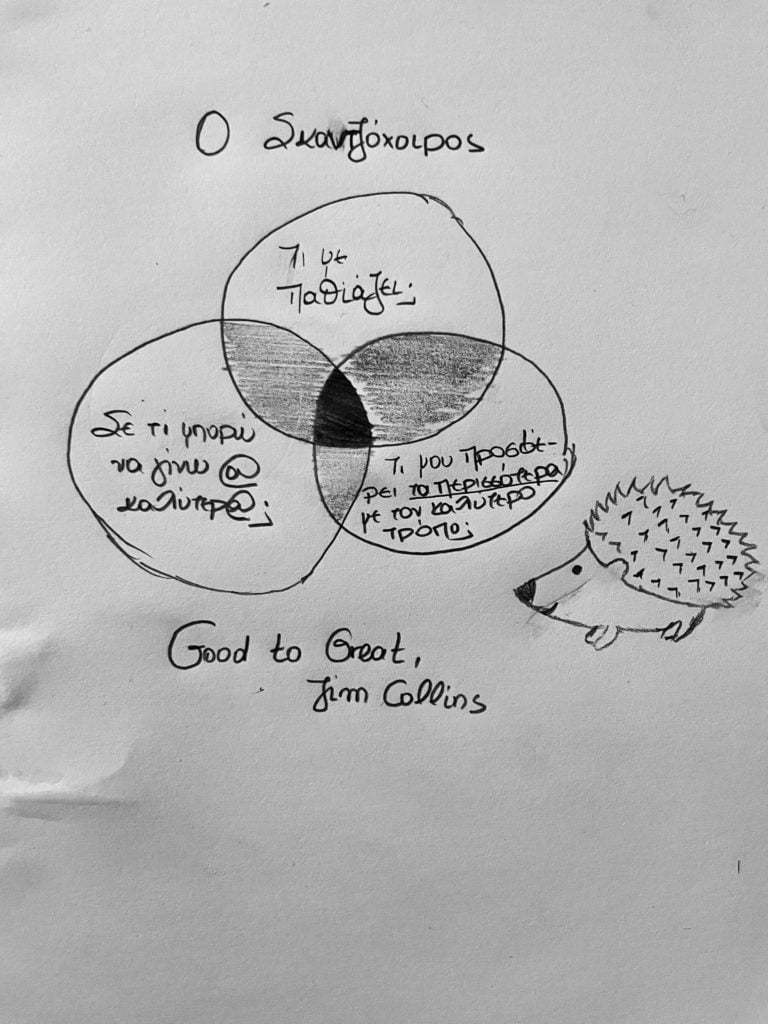 Ο Σκαντζόχοιρος
Τι με
παθιάζει;
Σε τι μπορώ
να γίνω @
καλύτερ@;
Τι μου προσφέ-
ρει το περισσότερα
με τον καλύτερο
τρόπο;
Good to Great,
Jim Collins